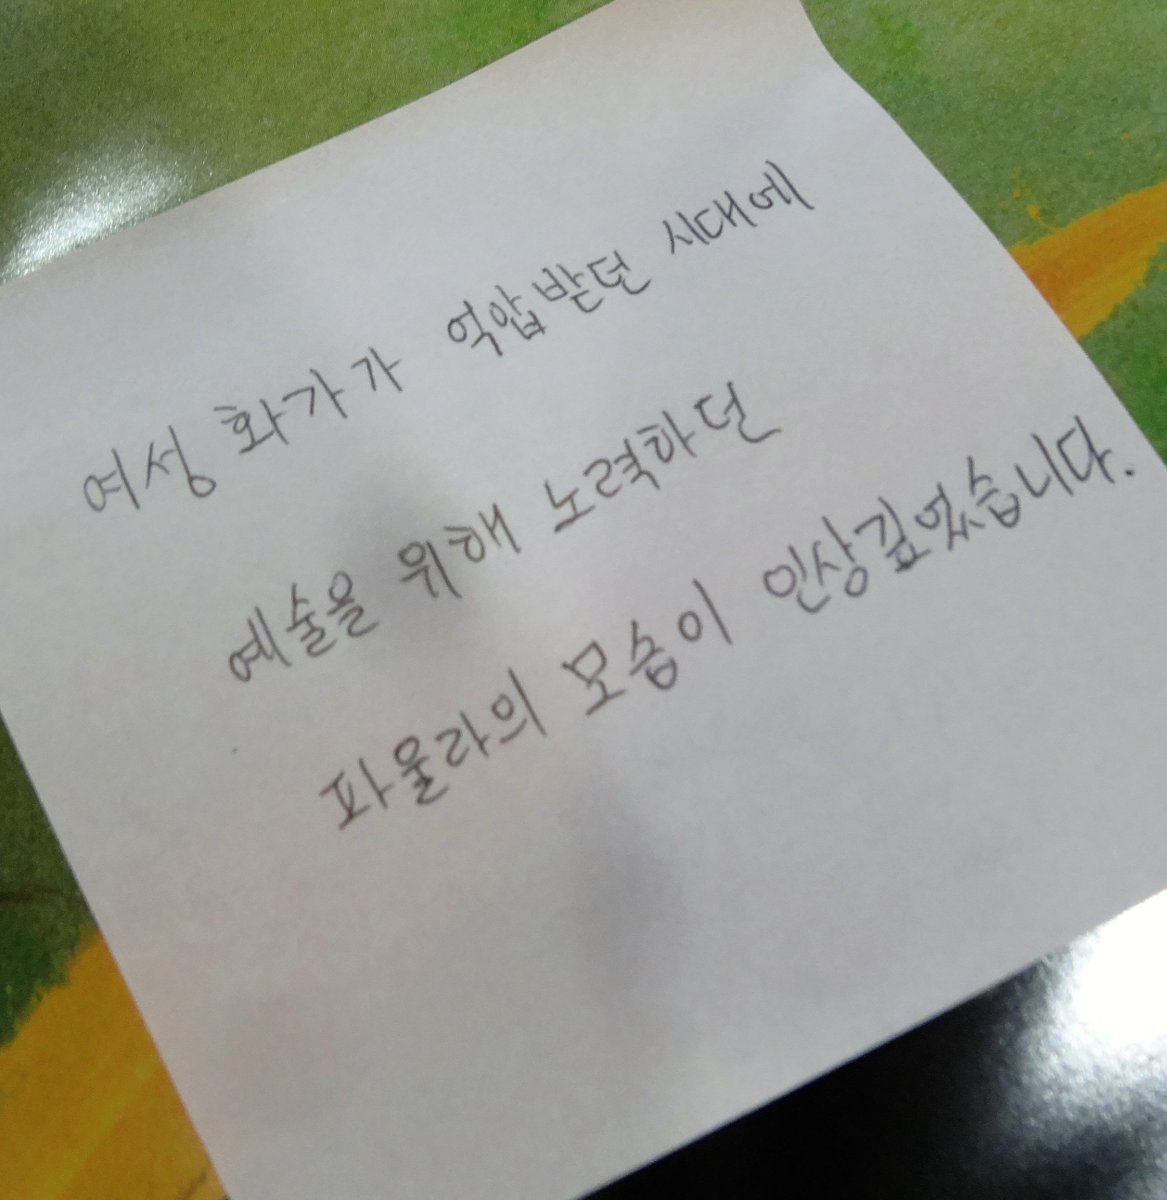 여성 화가가 억압받던 시대에
예술을 위해 노력하던
파울라의 모습이 인상깊었습니다.